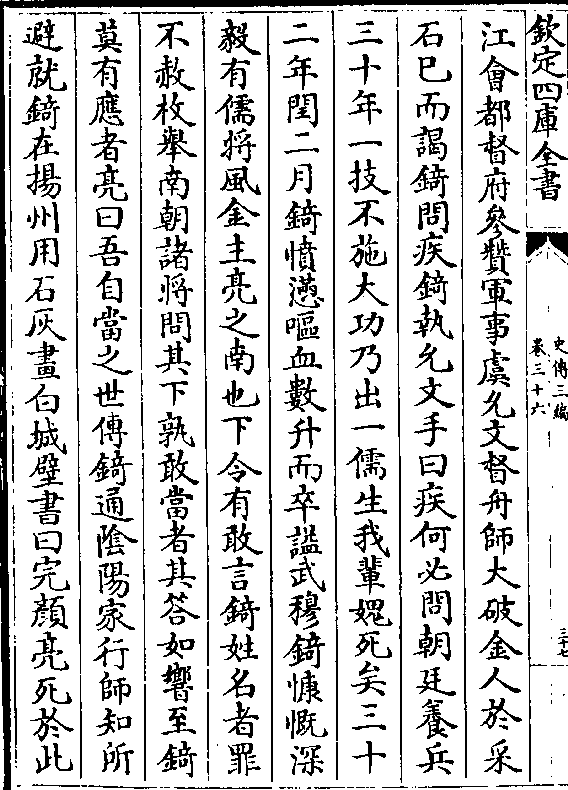 欽定四庫全書
史傳三編
卷三十六
三十七
江會都督府參贊軍事虞允文督舟師大破金人於采
石已而謁錡問疾錡執允文手曰疾何必問朝廷養兵
三十年一技不施大功乃出一儒生我輩媿死矣三十
二年閏二月錡憤懣嘔血數升而卒諡武穆錡慷慨深
毅有儒將風金主亮之南也下令有敢言錡姓名者罪
不赦枚舉南朝諸將問其下孰敢當者其答如響至錡
莫有應者亮曰吾自當之世傳錡通陰陽家行師知所
避就錡在揚州用石灰畫白城壁書曰完顔亮死於此